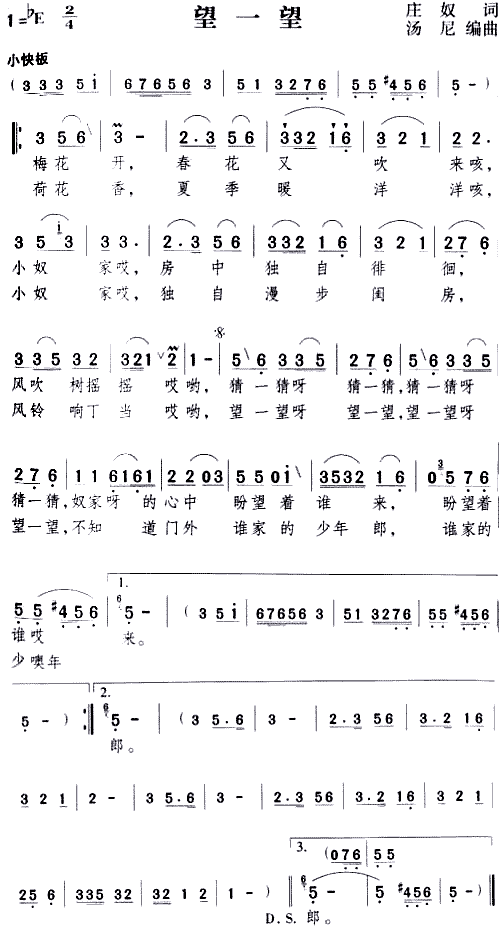 1=♭E 2/4 望一望 庄奴 词
汤尼 编曲
小快板
( 3 3 3 5 i | 6 7 6 5 6 3 | 5 1 3 2 7 6 | 5 5 #4 5 6 | 5 - )
3 5 6 | 3 - | 2 · 3 5 6 | 3 3 2 1 6 | 3 2 1 | 2 2 ·
梅花 开, 春花 又 吹 来咳,
荷花 香, 夏季 暖 洋 洋咳,
3 5 i 3 | 3 3 · | 2 · 3 5 6 | 3 3 2 1 6 | 3 2 1 | 2 7 6
小奴 家哎, 房中 独自 徘 徊,
小奴 家哎, 独自 漫步 闺 房,
3 3 5 3 2 | 3 2 1 2 | 1 - | 5 6 3 3 5 | 2 7 6 | 5 6 3 3 5
风吹 树摇 摇 哎哟, 猜一猜呀 猜一猜, 猜一猜呀
风铃 响丁 当 哎哟, 望一望呀 望一望, 望一望呀
2 7 6 | 1 1 6 1 6 1 | 2 2 0 3 | 5 5 0 i | 3 5 3 2 1 6 | 0 3 5 7 6
猜一猜, 奴家呀 的心中 盼望着 谁 来, 盼望着
望一望, 不知 道门外 谁家的 少年 郎, 谁家的
1.
5 5 #4 5 6 | 6 5 - | ( 3 5 i | 6 7 6 5 6 3 | 5 1 3 2 7 6 | 5 5 #4 5 6
谁哎 来。
少噢年
2.
5 - ) | 6 5 - | ( 3 5 · 6 | 3 - | 2 · 3 5 6 | 3 · 2 1 6
郎。
3 2 1 | 2 - | 3 5 · 6 | 3 - | 2 · 3 5 6 | 3 · 2 1 6 | 3 2 1
3.
( 0 7 6 | 5 5
2 5 6 | 3 3 5 3 2 | 3 2 1 2 | 1 - ) | 6 5 - | 5 #4 5 6 | 5 - )
D.S. 郎。